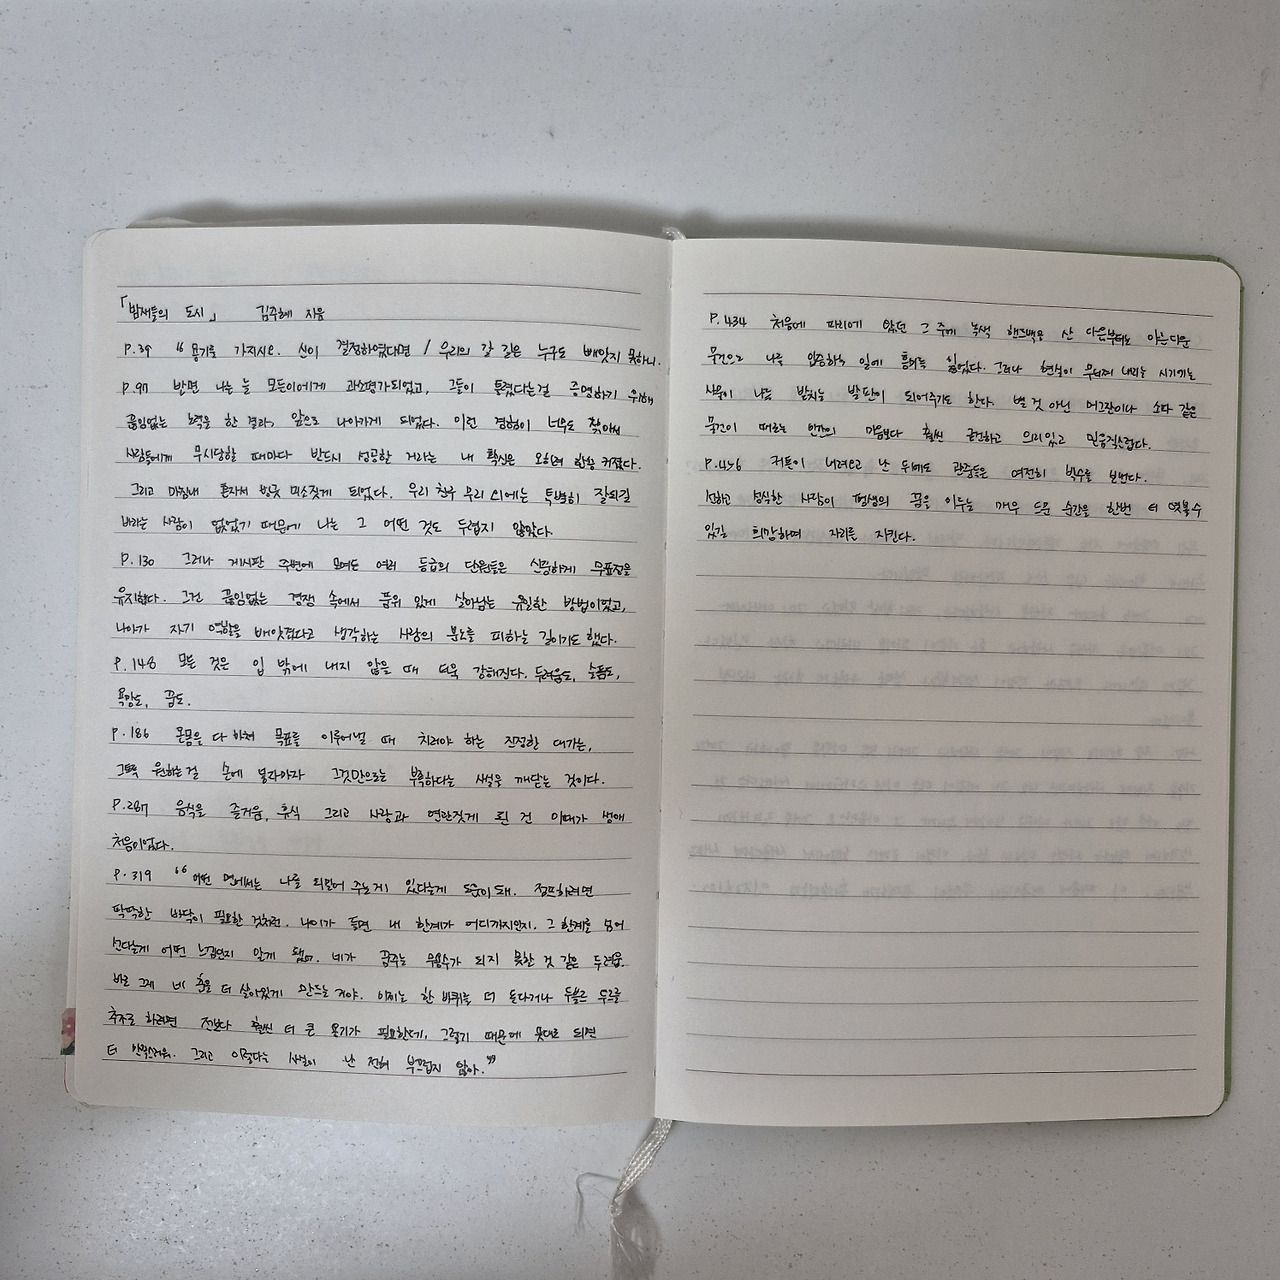 「밤새들의 도시」 김주혜 지음
P.39 “용기를 가지시오. 신이 결정하였다면 / 우리의 갈 길은 누구도 빼앗지 못하니.
P.97 반면 나는 늘 모든이에게 과소평가되었고, 그들이 틀렸다는걸 증명하기 위해
끊임없는 노력을 한 결과, 앞으로 나아가게 되었다. 이런 경험이 너무도 잦아서
사람들에게 무시당할 때마다 반드시 성공한 거라는 내 확신은 오히려 한층 커졌다.
그리고 마침내 혼자서 빙긋 미소짓게 되었다. 우리 친우 무리 에는 특별히 잘되길
바라는 사람이 없었기 때문에 나는 그 어떤 것도 두렵지 않았다.
P.130 그러나 게시판 주변에 모여든 여러 등급의 단원들은 신중하게 무표정을
유지했다. 그건 끊임없는 경쟁 속에서 품위 있게 살아남는 유일한 방법이었고,
나아가 자기 역할을 빼앗겼다고 생각하는 사람의 분노를 피하는 길이기도 했다.
P.148 모든 것은 입 밖에 내지 않을 때 더욱 강해진다. 두려움도, 슬픔도,
욕망도, 꿈도.
P.186 온몸을 다 바쳐 목표를 이루어낼 때 치러야 하는 진정한 대가는,
그토록 원하는걸 손에 넣자마자 그것만으로는 부족하다는 사실을 깨닫는 것이다.
P.287 음식을 즐거움, 휴식 그리고 사랑과 연관짓게 된 건 이때가 생애
처음이었다.
P.319 “어떤 면에서는 나를 되밀어 주는게 있다는게 도움이 돼. 점프하려면
딱딱한 바닥이 필요한 것처럼. 나이가 들면 내 한계가 어디까지인지. 그 한계를 넘어
선다는게 어떤 느낌인지 알게 됐어. 네가 꿈꾸는 무용수가 되지 못한 것 같은 두려움.
바로 그게 네 춤을 더 살아있게 만드는 거야. 이제는 한 바퀴를 더 돈다거나 두블르 투르를
추가로 하려면 전보다 훨씬 더 큰 용기가 필요한데, 그렇기 때문에 뜻대로 되면
더 만족스러워. 그리고 이렇다는 사실이 난 전혀 부끄럽지 않아.”
P.434 처음에 파리에 왔던 그 주에 녹색 핸드백을 산 다음부터는 아름다운
물건으로 나를 입증하는 일에 흥미를 잃었다. 그러나 현실이 무너져 내리는 시기에는
사물이 나를 받치는 발판이 되어주기도 한다. 별 것 아닌 머그잔이나 소파 같은
물건이 때로는 인간의 마음보다 훨씬 굳건하고 의리있고 믿음직스럽다.
P.456 커튼이 내려오고 난 뒤에도 관중들은 여전히 박수를 보낸다.
선하고 성실한 사람이 평생의 꿈을 이루는 매우 드문 순간을 한번 더 엿볼수
있길 희망하며 자리를 지킨다.